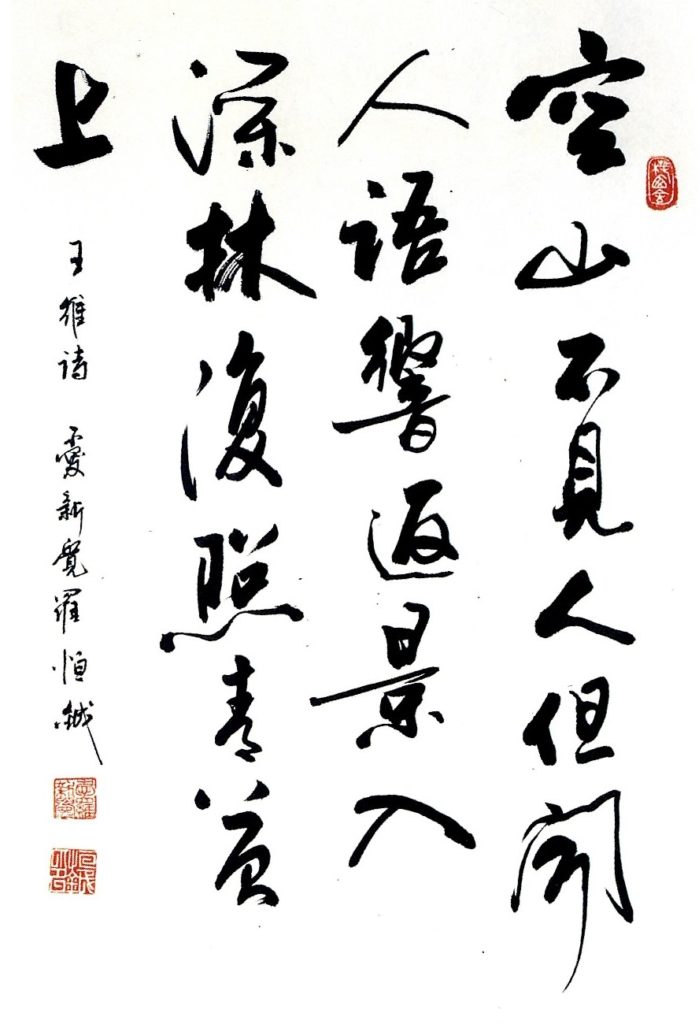 空山不見人但聞
人語響返景入
深林復照青苔
上
王維詩 愛新覺羅恒鉞